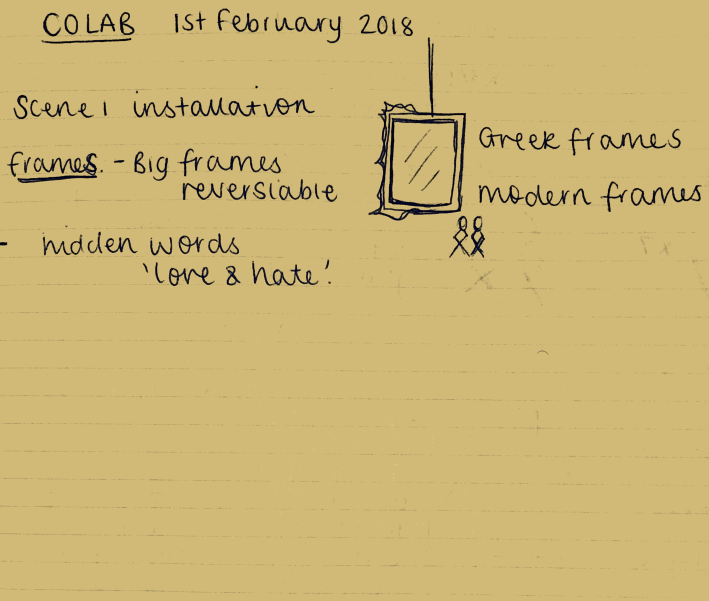 COLAB 1st February 2018
Scene 1 installation
frames. - Big frames
reversiable
- hidden words
'love & hate'.
Greek frames
modern frames